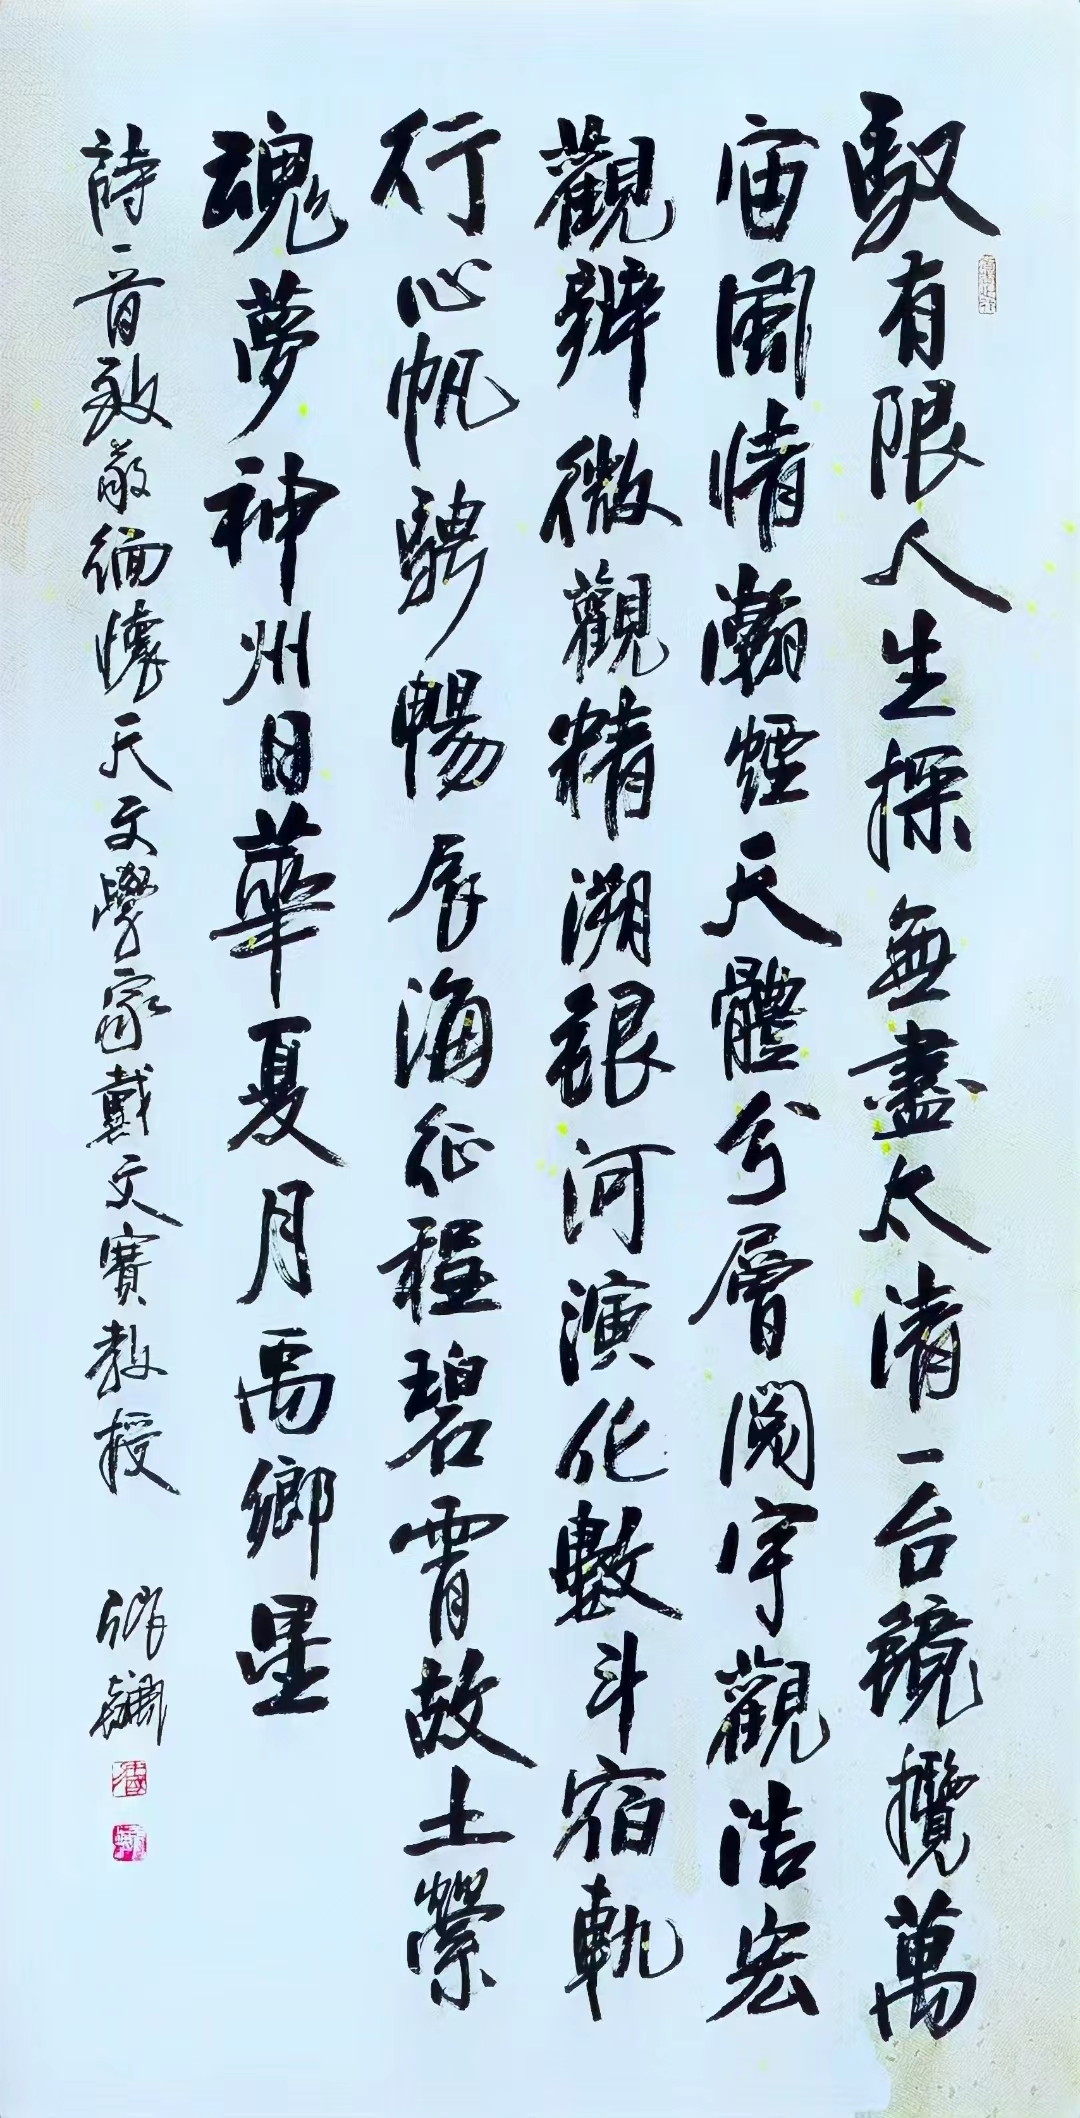 馭有限人生探無盡太清一台鏡攬萬
宙風情瀚煙天體分層閱宇觀浩宏
觀辨微觀精溯銀河演化數斗宿軌
行心帆騁暢辰海征程碧霄故土縈
魂夢神州日華夏月禹鄉星
詩一首致敬緬懷天文學家戴文賽教授